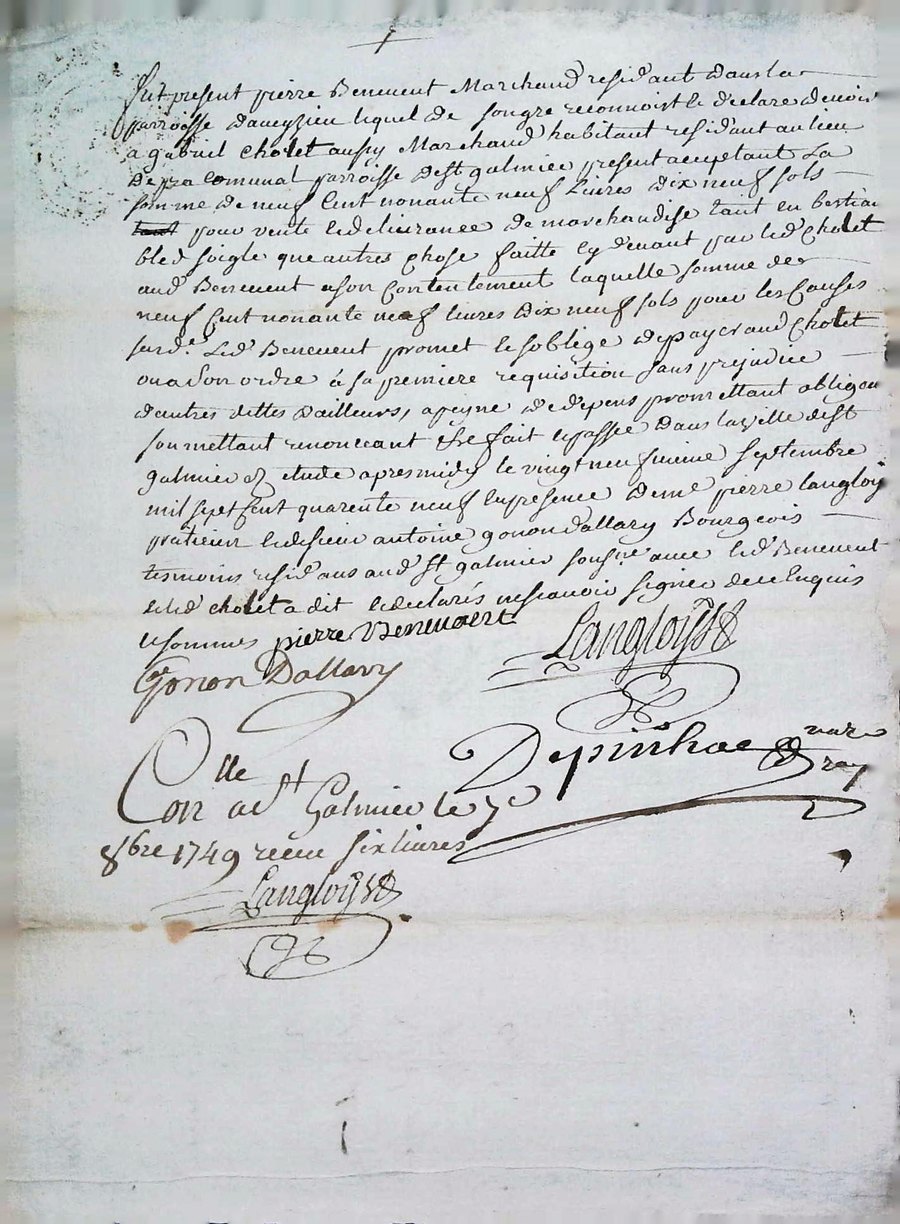 fut present pierre Benevent Marchand residant dans la
parroisse daveyzieu lequel de son gre reconnoist & declare devoir
a gabriel cholet aussy Marchand habitant residant au lieu
de pra comunal parroisse de st galmier present acceptant La
somme de neuf cent nonante neuf livres dix neuf sols
pour vente & delivrance de marchandise tant en bestiau
bled soigle que autres chose faitte cy devant par led cholet
aud Benevent a son contentement laquelle somme de
neuf cent nonante neuf livres dix neuf sols pour les causes
susd. Led Benevent promet & soblige de payer aud cholet
ou a son ordre a sa premiere requisition sans prejudice
dautres dettes dailleurs, a peyne de depens promettant obligeant
soumettant renonceant &c fait & passé dans la ville de st
galmier & etude apres midy le vingt neufvieme septembre
mil sept cent quarente neuf en presence de me pierre langloy
praticien & de sieur antoine gonon dallary Bourgeois
tesmoins residans aud st galmier sousne avec led Benevent
& led cholet a dit & declaré ne scavoir signer de ce Enquis
& sommes pierre Benevent
Langloys
Gonon Dallary
Depinhac
Colle
Con a st Galmier le 7e
8bre 1749 receu six livres
Langloys